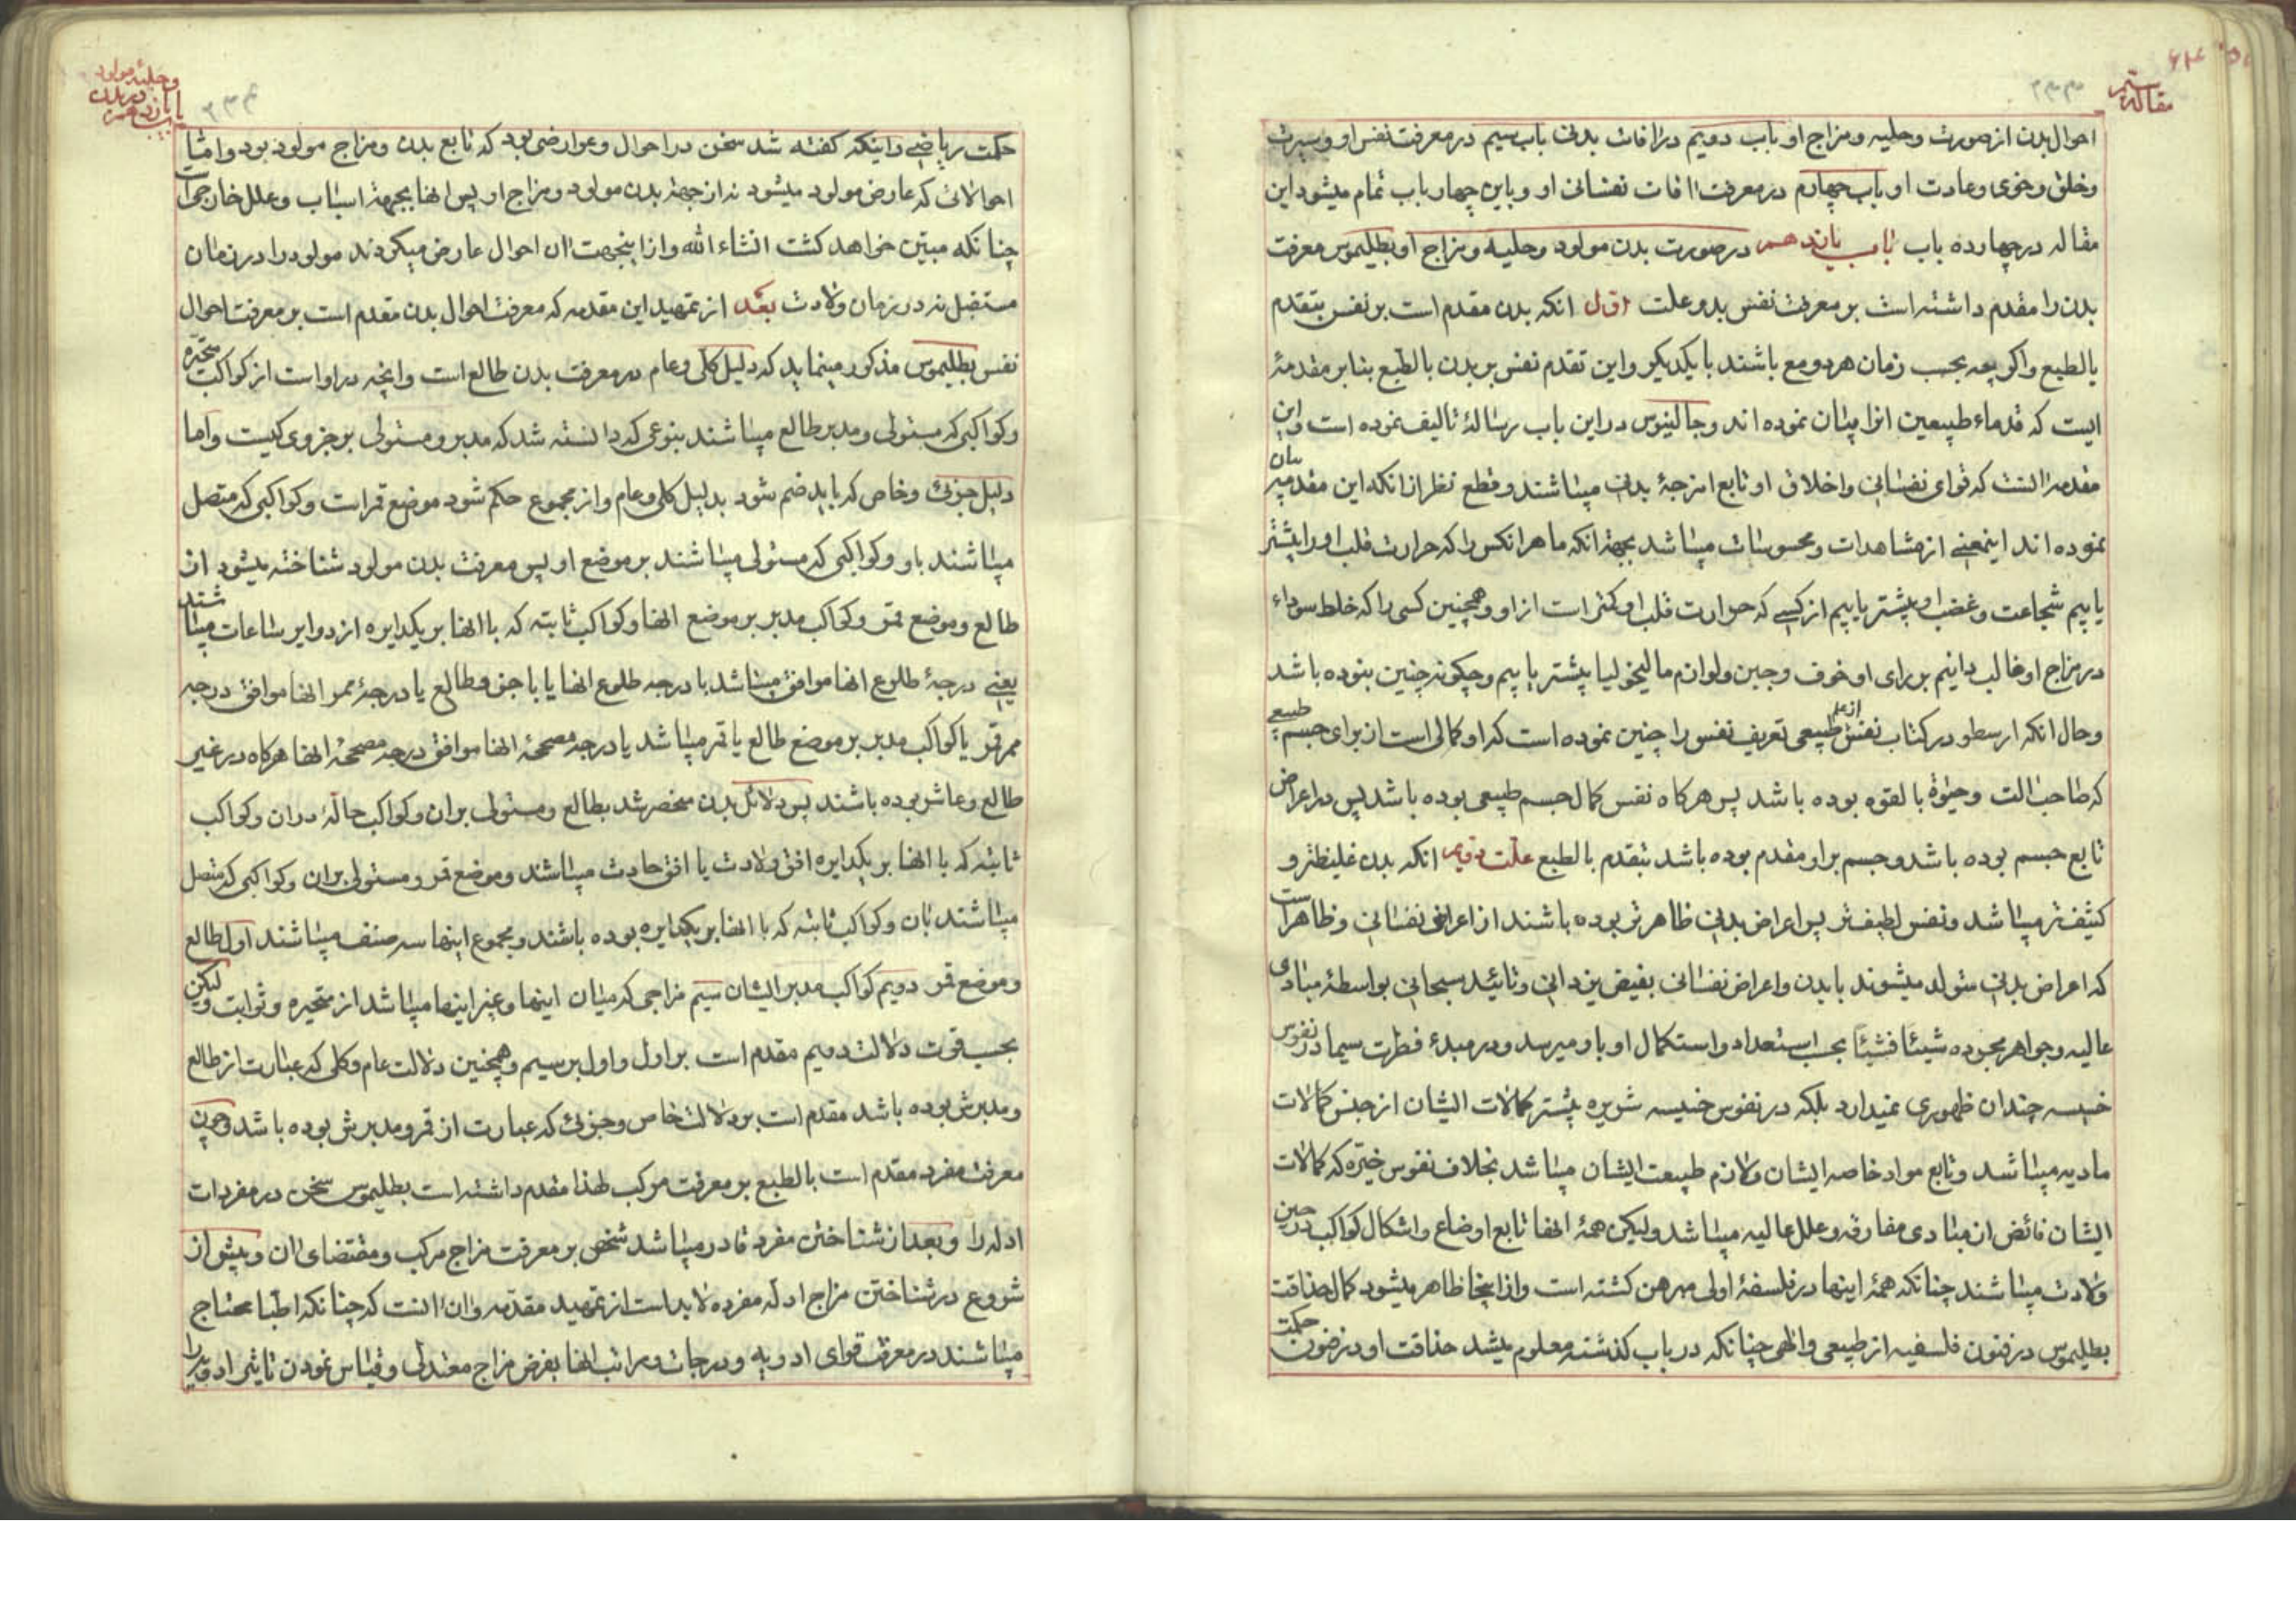 مقاله سیم
۲۳۳
احوال بدن از صورت و حلیه و مزاج او باب دویم در افات بدنی باب سیم در معرفت نفس او و سیرت
و خلق و خوی و عادت او باب چهارم در معرفت افات نفسانی او و باین چهار باب تمام میشود این
مقاله در چهارده باب باب یازدهم در صورت بدن مولود و حلیه و مزاج او بطلیموس معرفت
بدن را مقدم داشته است بر معرفت نفس بدو علت اول انکه بدن مقدم است بر نفس بتقدم
بالطبع واکرچه بحسب زمان هر دو مع باشند با یکدیکر و این تقدم نفس بر بدن بالطبع بنا بر مقدمهٔ
ایست که قدماء طبیعین انرا بیان نموده اند و جالینوس در این باب رسالهٔ تالیف نموده است و این
مقدمه انست که قوای نفسانی و اخلاق او تابع امزجهٔ بدنی میباشند و قطع نظر از انکه این مقدمه بیان
نموده اند اینمعنی از مشاهدات و محسوسات میباشد بجهة انکه ما هر انکس را که حرارت قلب او را بیشتر
یابیم شجاعت و غضب او بیشتر یابیم از کسی که حرارت قلب او کمتر است از او و همچنین کسی را که خلط سوداء
در مزاج او غالب دانیم بر رای او خوف و جبن و لوازم مالیخولیا بیشتر یابیم و چکونه چنین نبوده باشد
و حال انکه ارسطو در کتاب نفس از علم طبیعی تعریف نفس را چنین نموده است که او کمالی است از برای جسم طبیعی
که صاحب الت و حیوة بالقوه بوده باشد پس هرکاه نفس کمال جسم طبیعی بوده باشد پس در اعراض
تابع جسم بوده باشد و جسم بر او مقدم بوده باشد بتقدم بالطبع علت دویم انکه بدن غلیظتر و
کثیف تر میباشد و نفس لطیف تر پس اعراض بدنی ظاهرتر بوده باشند از اعراض نفسانی و ظاهر است
که اعراض بدنی متولد میشوند با بدن و اعراض نفسانی بفیض یزدانی و تائید سبحانی بواسطهٔ مبادی
عالیه و جواهر مجرده شیئا فشیئا بحسب استعداد و استکمال او باو میرسد و در مبدء فطرت سیما در نفوس
خسیسه چندان ظهوری نمیدارد بلکه در نفوس خسیسه شریره بیشتر کمالات ایشان از جنس کمالات
مادیه میباشد و تابع مواد خاصه ایشان و لازم طبیعت ایشان میباشد بخلاف نفوس خیره که کمالات
ایشان فائض از مبادی مفارقه و علل عالیه میباشد ولیکن همهٔ انها تابع اوضاع و اشکال کواکب در حین
ولادت میباشند چنانکه همهٔ اینها در فلسفهٔ اولی مبرهن کشته است و از اینجا ظاهر میشود کمال حذاقت
بطلیموس در فنون فلسفیه از طبیعی و الهی چنانکه در باب کذشته معلوم میشد حذاقت او در فنون حکمت
باب یازدهم در بدن و حلیهٔ مولود
۲۳۴
حکمت ریاضی و اینکه کفته شد سخن در احوال و عوارضی بود که تابع بدن و مزاج مولود بود و اما
احوالاتی که عارض مولود میشود نه از جهة بدن مولود و مزاج او پس انها بجهة اسباب و علل خارجی است
چنانکه مبین خواهد کشت انشاء الله و از اینجهت ان احوال عارض میکردند مولود را در زمان
مستقبل نه در زمان ولادت بعد از تمهید این مقدمه که معرفت احوال بدن مقدم است بر معرفت احوال
نفس بطلیموس مذکور مینماید که دلیل کلی و عام در معرفت بدن طالع است و انچه در او است از کواکب متحیره
و کواکبی که مستولی و مدبر طالع میباشند بنوعی که دانسته شد که مدبر و مستولی بر جزوی کیست و اما
دلیل جزئی و خاص که باید ضم شود بدلیل کلی و عام و از مجموع حکم شود موضع قمر است و کواکبی که متصل
میباشند باو و کواکبی که مستولی میباشند بر موضع او پس معرفت بدن مولود شناخته میشود از
طالع و موضع قمر و کواکب مدبر بر موضع انها و کواکب ثابته که با انها بر یکدایره از دوایر ساعات میباشند
یعنی درجهٔ طلوع انها موافق میباشد با درجه طلوع انها یا با جزو طالع یا درجهٔ ممر انها موافق درجه
ممر قمر یا کواکب مدبر بر موضع طالع یا قمر میباشد یا درجه مصححهٔ انها موافق درجه مصححهٔ انها هرکاه در غیر
طالع و عاشر بوده باشند پس دلائل بدن منحصر شد بطالع و مستولی بر ان و کواکب حالهٔ در ان و کواکب
ثابته که با انها بر یکدایره افق ولادت یا افق حادث میباشند و موضع قمر و مستولی بر ان و کواکبی که متصل
میباشند بان و کواکب ثابته که با انها بر یکدایره بوده باشند و مجموع اینها سه صنف میباشند اول طالع
و موضع قمر دویم کواکب مدبر ایشان سیم مزاجی که میان اینها و غیر اینها میباشد از متحیره و ثوابت ولیکن
بحسب قوت دلالت دویم مقدم است بر اول و اول بر سیم و همچنین دلالت عام و کلی که عبارت از طالع
و مدبرش بوده باشد مقدم است بر دلالت خاص و جزئی که عبارت از قمر و مدبرش بوده باشد و چون
معرفت مفرد مقدم است بالطبع بر معرفت مرکب لهذا مقدم داشته است بطلیموس سخن در مفردات
ادله را و بعد از شناختن مفرد قادر میباشد شخص بر معرفت مزاج مرکب و مقتضای ان و پیش از
شروع در شناختن مزاج ادلهٔ مفرده لابد است از تمهید مقدمه و ان انست که چنانکه اطبا محتاج
میباشند در معرفت قوای ادویه و درجات و مراتب انها بفرض مزاج معتدلی و قیاس نمودن تاثیر ادویه را